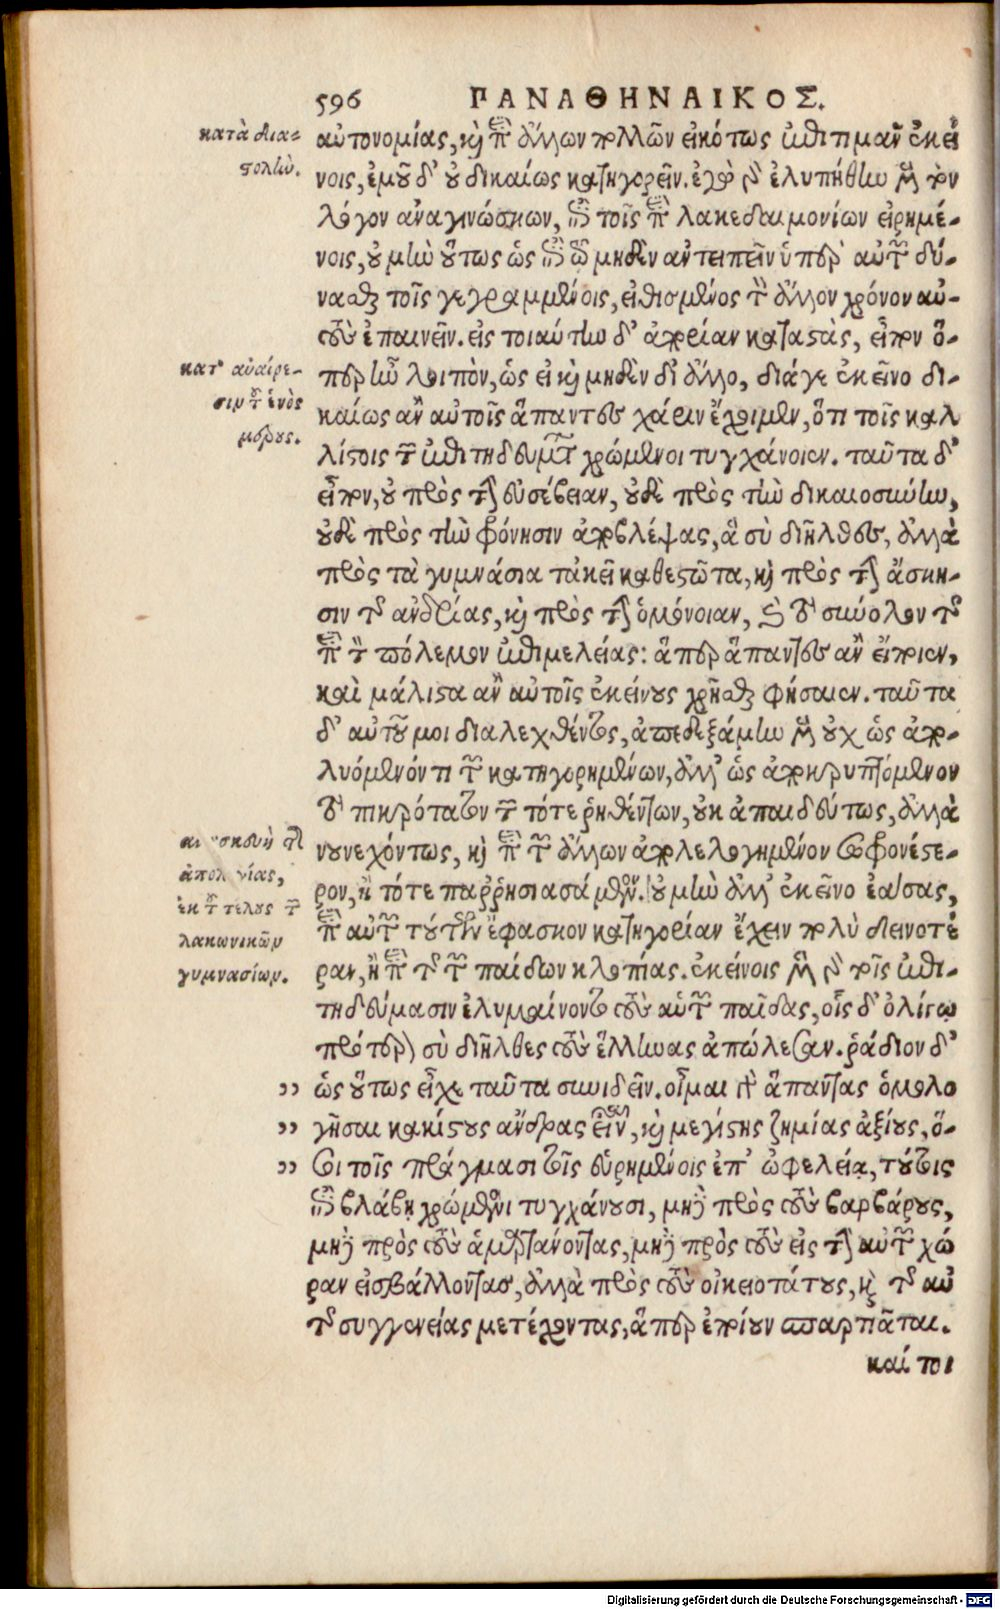 596 ΠΑΝΑΘΗΝΑΙΚΟΣ.
κατὰ δια-
στολὴν.
αὐτονομίας, καὶ περὶ ἄλλων πολλῶν εἰκότως ἐπιτιμᾶν ἐκεί
νοις, ἐμοῦ δ' οὐ δικαίως κατηγορεῖν. ἐγὼ γὰρ ἐλυπήθην μὲν τὸν
λόγον ἀναγινώσκων, ἐπὶ τοῖς περὶ λακεδαιμονίων εἰρημέ-
νοις, οὐ μὴν οὕτως ὡς ἐπὶ τῷ μηδὲν ἀντειπεῖν ὑπὲρ αὐτῶν δύ-
νασθαι τοῖς γεγραμμένοις, εἰθισμένος τὸν ἄλλον χρόνον αὐ-
τοὺς ἐπαινεῖν. εἰς τοιαύτην δ' ἀπορίαν καταστὰς, εἶπον ὅ-
κατ' ἀναίρε-
σιν τοῦ ἑνὸς
μέρους.
περ ἦν λοιπὸν, ὡς εἰ καὶ μηδὲν δι' ἄλλο, διά γε ἐκεῖνο δι-
καίως ἂν αὐτοῖς ἅπαντες χάριν ἔχοιμεν, ὅτι τοῖς καλ
λίστοις τῶν ἐπιτηδευμάτων χρώμενοι τυγχάνοιεν. ταῦτα δ'
εἶπον, οὐ πρὸς τὴν εὐσέβειαν, οὐδὲ πρὸς τὴν δικαιοσύνην,
οὐδὲ πρὸς τὴν φρόνησιν ἀποβλέψας, ἃ σὺ διῆλθες, ἀλλὰ
πρὸς τὰ γυμνάσια τἀκεῖ καθεστῶτα, καὶ πρὸς τὴν ἄσκη-
σιν τῆς ἀνδρίας, καὶ πρὸς τὴν ὁμόνοιαν, καὶ τὸ σύνολον τῆς
περὶ τὸν πόλεμον ἐπιμελείας: ἅπερ ἅπαντες ἂν εἴποιεν,
καὶ μάλιστα ἂν αὐτοῖς ἐκείνους χρῆσθαι φήσαιεν. ταῦτα
δ' αὐτοῦ μοι διαλεχθέντος, ἀπεδεξάμην μὲν οὐχ ὡς ἀπο-
λυόμενόν τι τῶν κατηγορημένων, ἀλλ' ὡς ἀποκρυπτόμενον
τὸ πικρότατον τῶν τότε ῥηθέντων, οὐκ ἀπαιδεύτως, ἀλλὰ
κατασκευὴ τῆς
ἀπολογίας,
ἐκ τοῦ τέλους τῶν
λακωνικῶν
γυμνασίων.
νουνεχόντως, καὶ περὶ τῶν ἄλλων ἀπολελογημένον σωφρονέστε-
ρον, ἢ τότε παῤῥησιασάμενον. οὐ μὴν ἀλλ' ἐκεῖνο ἐάσας,
περὶ αὐτῶν τούτων ἔφασκον κατηγορίαν ἔχειν πολὺ δεινοτέ
ραν, ἢ περὶ τῆς τῶν παίδων κλοπίας. ἐκείνοις μὲν γὰρ τοῖς ἐπι-
τηδεύμασιν ἐλυμαίνοντο τοὺς αὑτῶν παῖδας, οἷς δ' ὀλίγῳ
πρότερον σὺ διῆλθες τοὺς ἕλληνας ἀπώλεσαν. ῥάδιον δ'
ὡς οὕτως εἶχε ταῦτα συνιδεῖν. οἶμαι γὰρ ἅπαντας ὁμολο
γῆσαι κακίστους ἄνδρας εἶναι, καὶ μεγίστης ζημίας ἀξίους, ὅ-
σοι τοῖς πράγμασι τοῖς εὑρημένοις ἐπ' ὠφελείᾳ, τούτοις
ἐπὶ βλάβῃ χρώμενοι τυγχάνουσι, μὴ πρὸς τοὺς βαρβάρους,
μὴ πρὸς τοὺς ἁμαρτάνοντας, μὴ πρὸς τοὺς εἰς τὴν αὐτῶν χώ
ραν εἰσβάλλοντας, ἀλλὰ πρὸς τοὺς οἰκειοτάτους, καὶ τῆς αὐ
τῆς συγγενείας μετέχοντας, ἅπερ ἐποίουν σπαρτιᾶται.
καί τοι
Digitalisierung gefördert durch die Deutsche Forschungsgemeinschaft - DFG